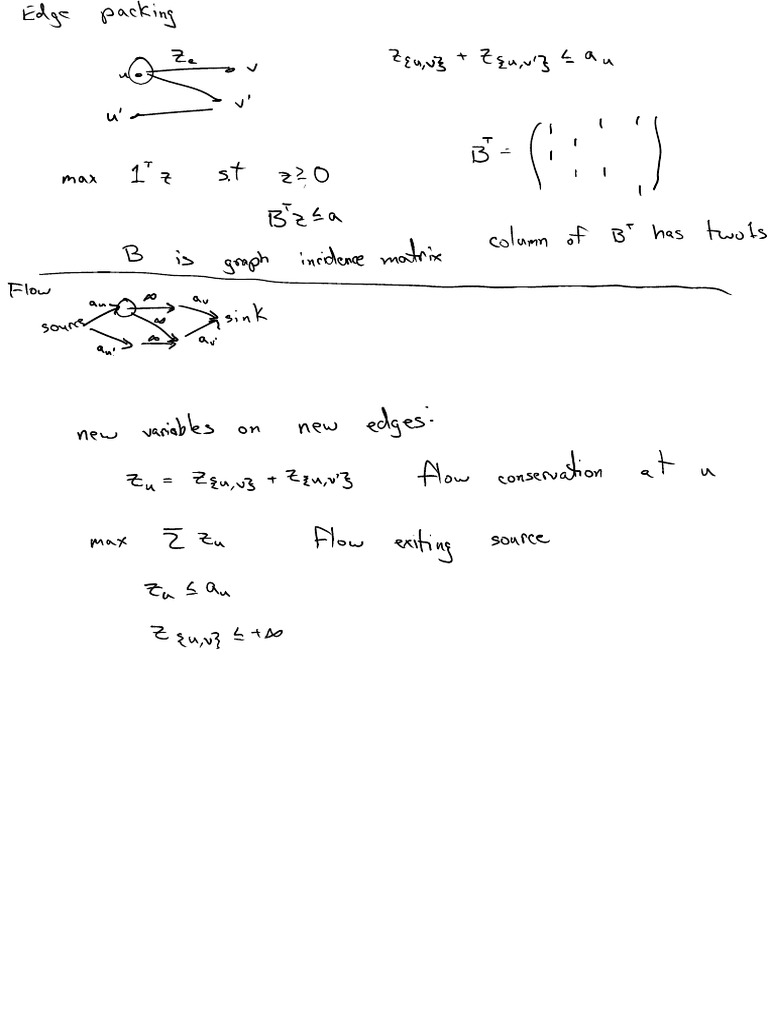 Edge packing
u z_e v
u' v'
z_{u,v} + z_{u,v'} ≤ a_u
max 1^T z s.t z ≥ 0
B^T z ≤ a
B^T = ( 1 1 1 1 1 1 1 1 )
B is graph incidence matrix
column of B^T has two 1s
Flow
a_u ∞ a_v
source ∞ sink
a_u' ∞ a_v'
new variables on new edges:
z_u = z_{u,v} + z_{u,v'} flow conservation at u
max Σ z_u Flow exiting source
z_u ≤ a_u
z_{u,v} ≤ +∞